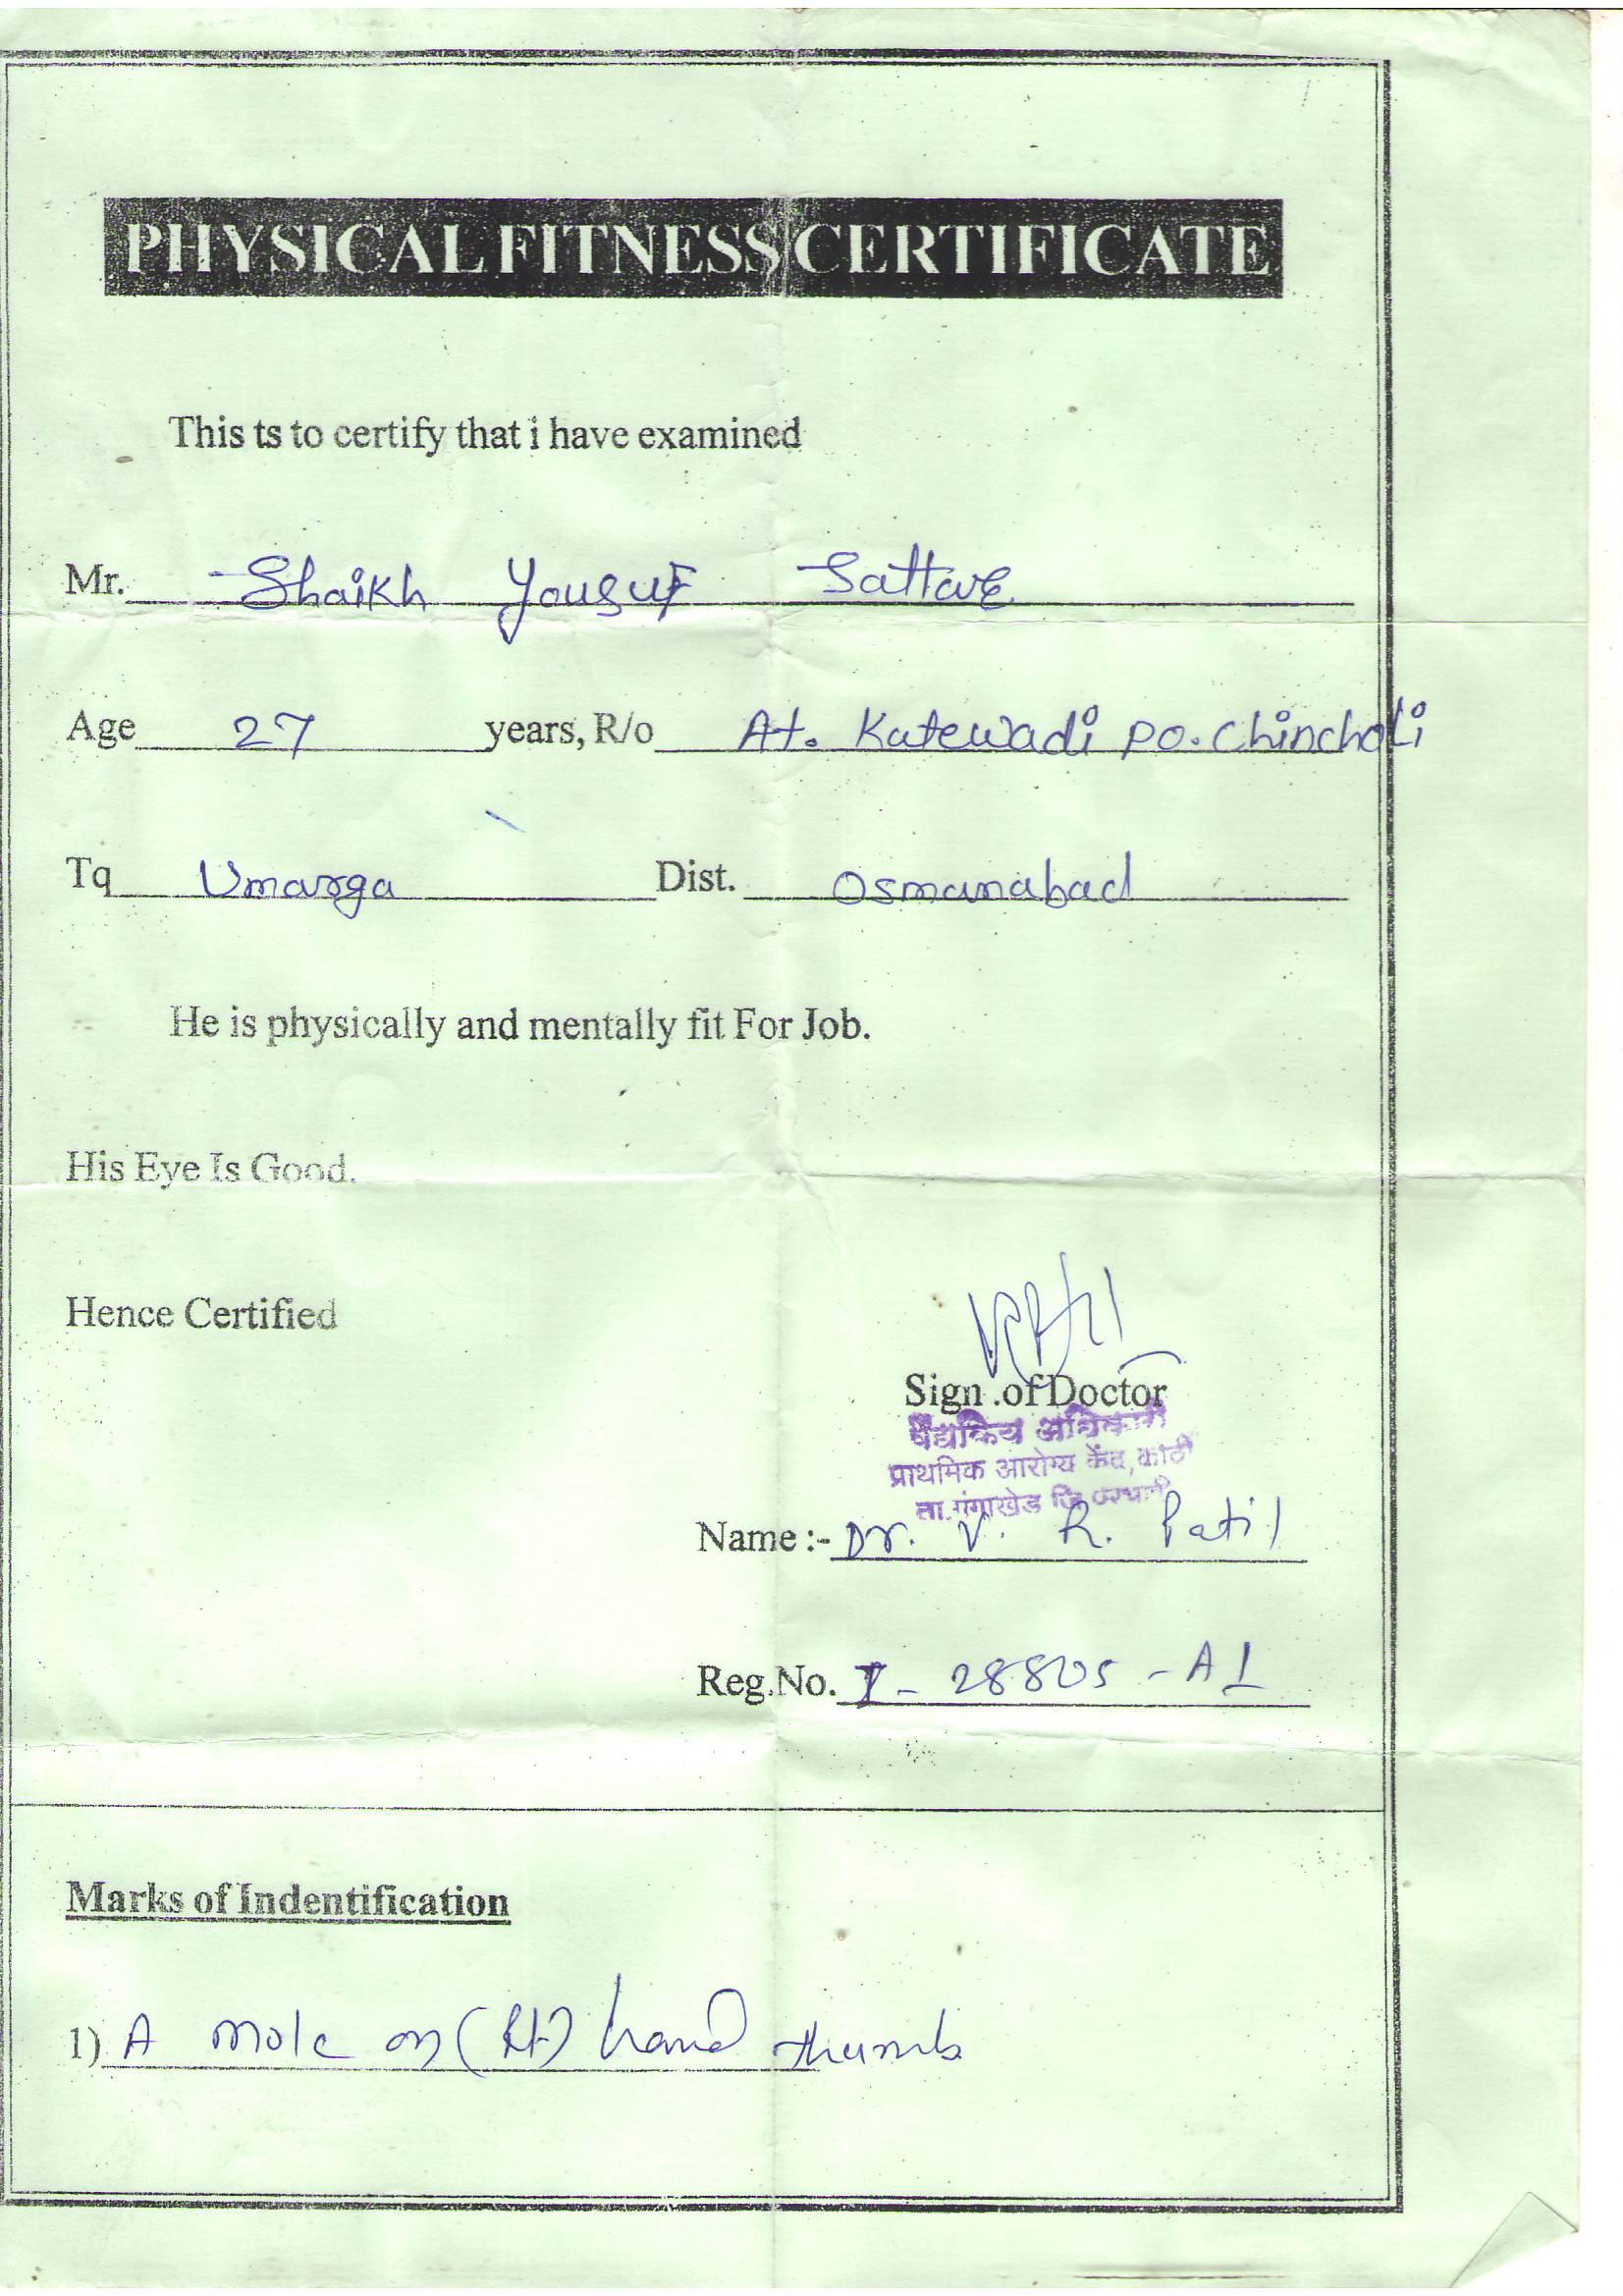 PHYSICAL FITNESS CERTIFICATE
This ts to certify that i have examined
Mr. Shaikh Yousuf Sattar
Age 27 years, R/o At. Katewadi po. chincholi
Tq Umarga Dist. Osmanabad
He is physically and mentally fit For Job.
His Eye Is Good.
Hence Certified
Sign .of Doctor
वैद्यकिय अधिकारी
प्राथमिक आरोग्य केंद्र,
ता. गंगाखेड जि. परभणी
Name :- Dr. V. R. Patil
Reg.No. I - 28805 - A1
Marks of Indentification
1) A mole on (Rt) hand thumb